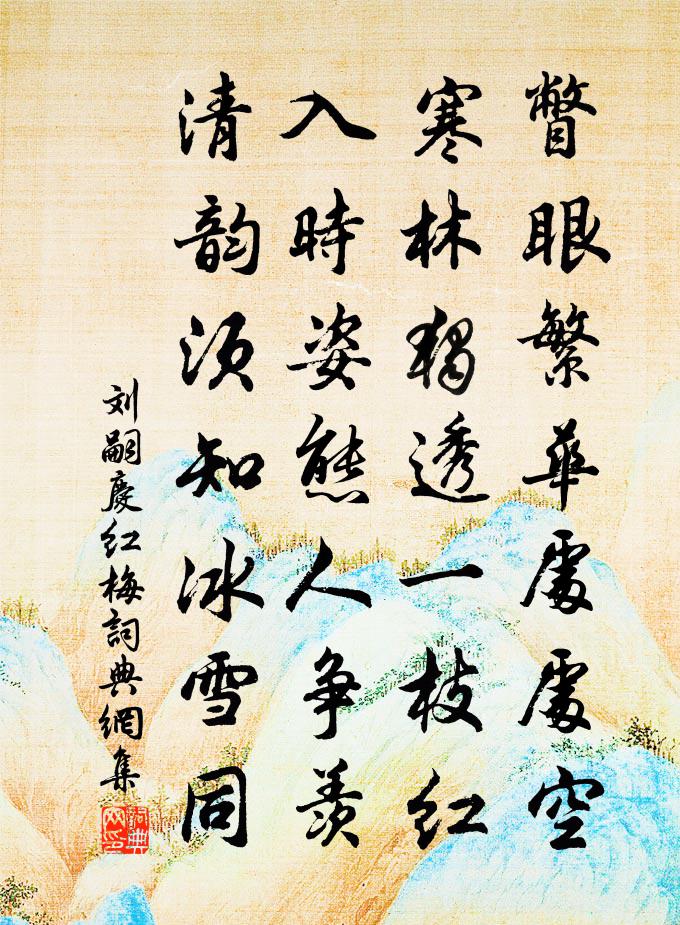 瞥眼繁華處處空
寒林獨透一枝紅
入時姿態人爭羨
清韵須知冰雪同
刘嗣慶红梅詞典網集
詞典网印